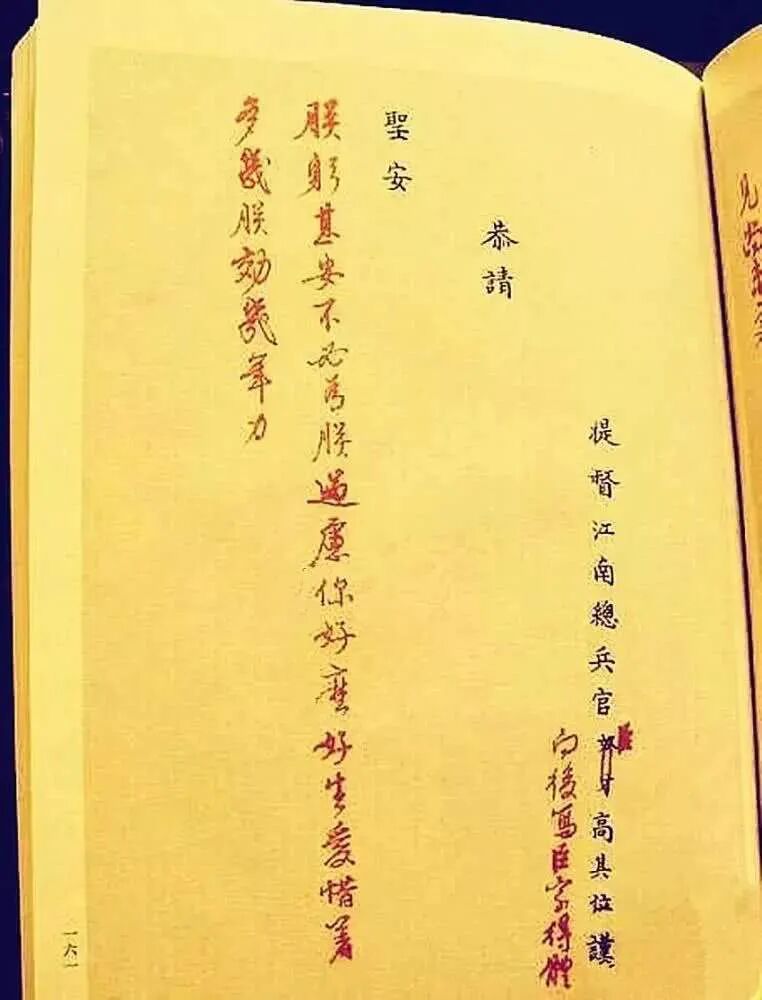 提督江南總兵官奴才臣高其位謹
向後寫臣字得體
恭請
聖安
朕躬甚安不必為朕過慮你好麼好生愛惜着
多幾朕効幾年力
一六一